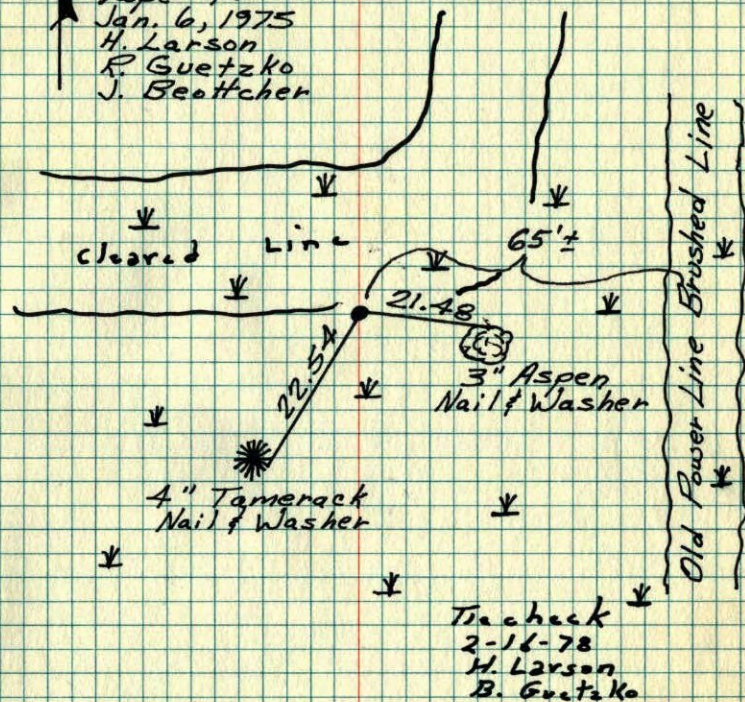 Jan. 6, 1975
H. Larson
R. Guetzko
J. Beottcher
Cleared Line
65'±
21.48
22.54
3" Aspen
Nail & Washer
4" Tamerack
Nail & Washer
Old Power Line Brushed Line
Tie check
2-16-78
H. Larson
B. Guetzko